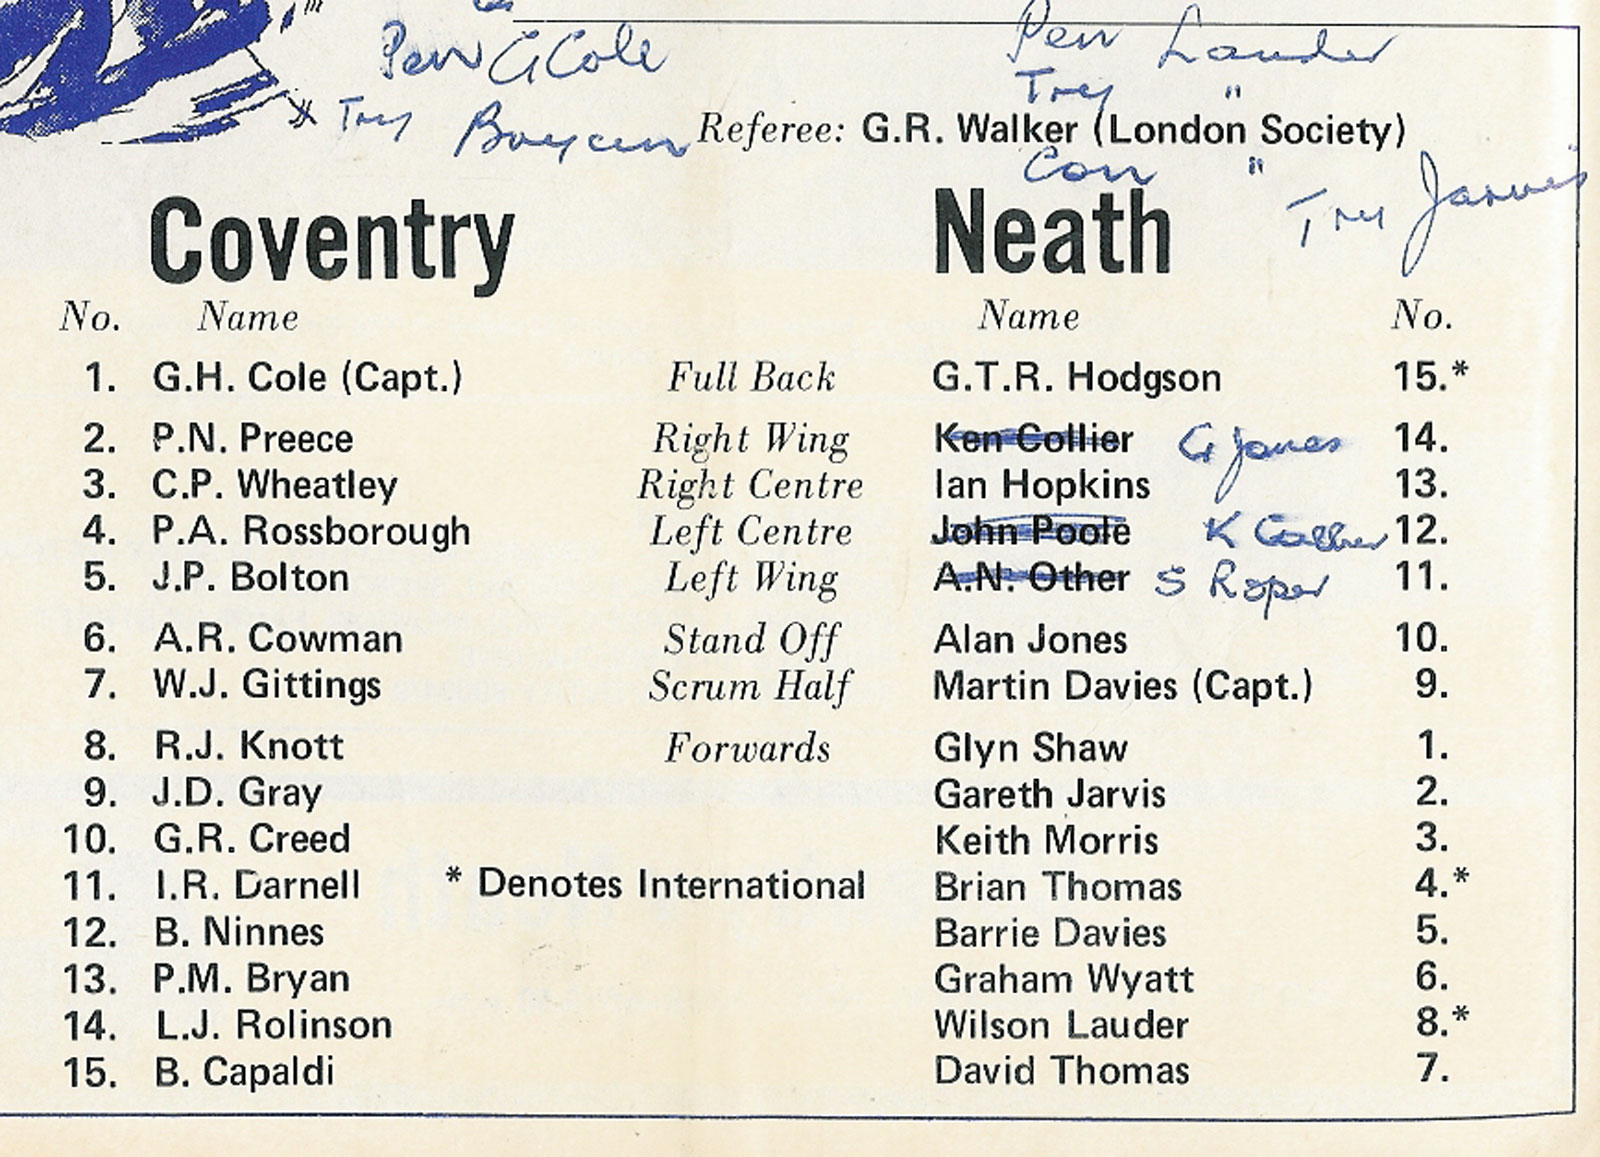 Pen G Cole
Pen Lauder
Try "
Try
Referee: G.R. Walker (London Society)
Con "
Try Jarvis
Coventry
Neath
No. Name
Name No.
1. G.H. Cole (Capt.) Full Back G.T.R. Hodgson 15.*
2. P.N. Preece Right Wing Ken Collier G Jones 14.
3. C.P. Wheatley Right Centre Ian Hopkins 13.
4. P.A. Rossborough Left Centre John Poole K Collier 12.
5. J.P. Bolton Left Wing A.N. Other S Roper 11.
6. A.R. Cowman Stand Off Alan Jones 10.
7. W.J. Gittings Scrum Half Martin Davies (Capt.) 9.
8. R.J. Knott Forwards Glyn Shaw 1.
9. J.D. Gray Gareth Jarvis 2.
10. G.R. Creed Keith Morris 3.
11. I.R. Darnell * Denotes International Brian Thomas 4.*
12. B. Ninnes Barrie Davies 5.
13. P.M. Bryan Graham Wyatt 6.
14. L.J. Rolinson Wilson Lauder 8.*
15. B. Capaldi David Thomas 7.